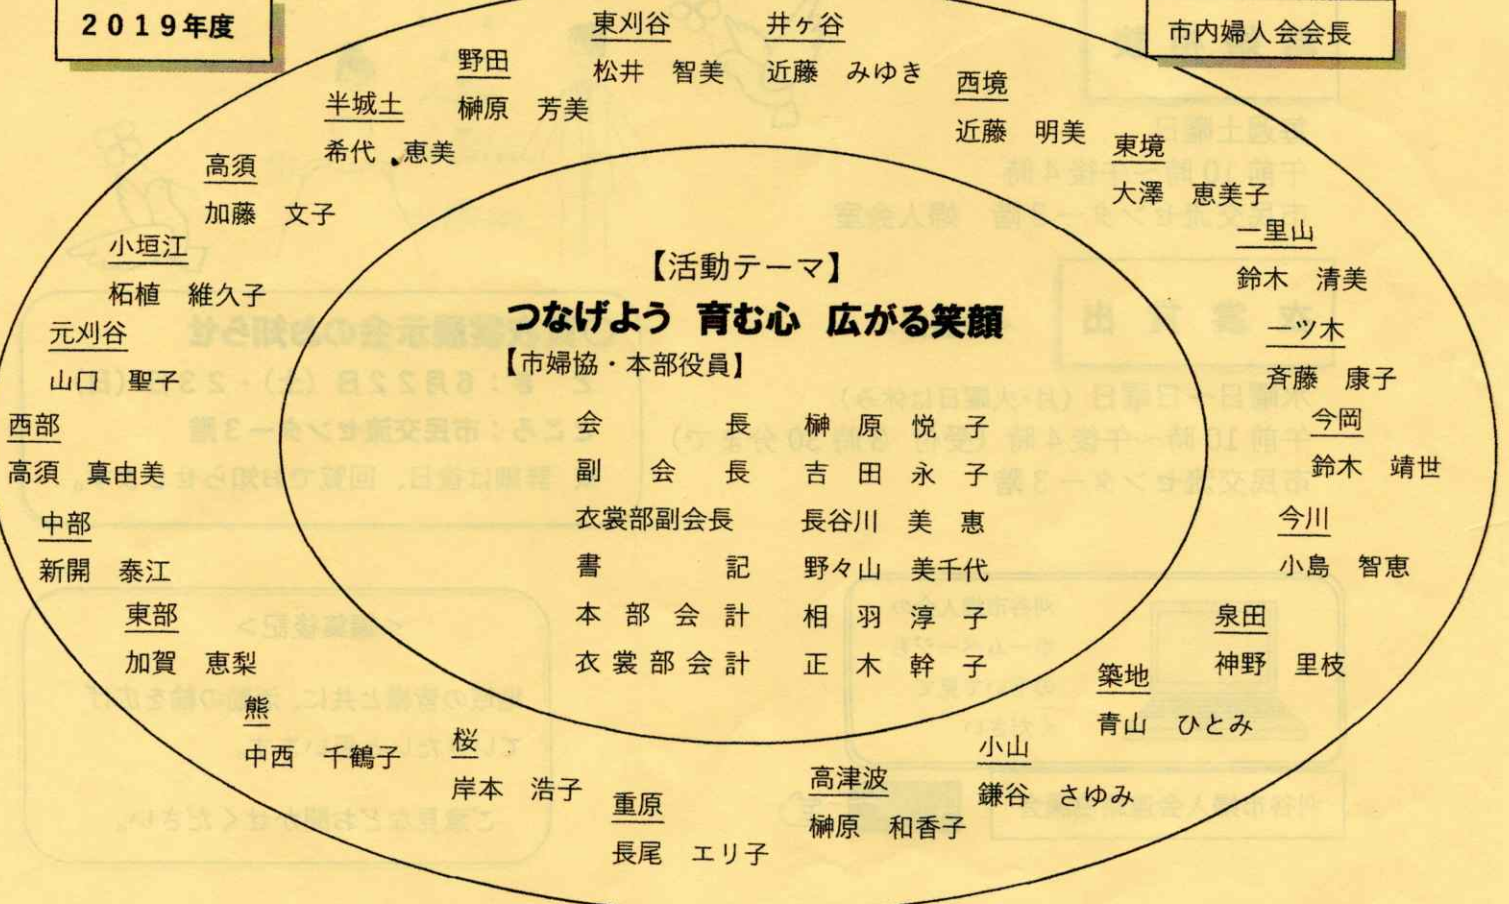 2019年度
市内婦人会会長
東刈谷
松井 智美
井ヶ谷
近藤 みゆき
西境
近藤 明美
東境
大澤 恵美子
一里山
鈴木 清美
一ツ木
斉藤 康子
今岡
鈴木 靖世
今川
小島 智恵
泉田
神野 里枝
築地
青山 ひとみ
小山
鎌谷 さゆみ
高津波
榊原 和香子
重原
長尾 エリ子
桜
岸本 浩子
熊
中西 千鶴子
東部
加賀 恵梨
中部
新開 泰江
西部
高須 真由美
元刈谷
山口 聖子
小垣江
柘植 維久子
高須
加藤 文子
半城土
希代 恵美
野田
榊原 芳美
【活動テーマ】
つなげよう 育む心 広がる笑顔
【市婦協・本部役員】
会長 榊原悦子
副会長 吉田永子
衣裳部副会長 長谷川美惠
書記 野々山美千代
本部会計 相羽淳子
衣裳部会計 正木幹子